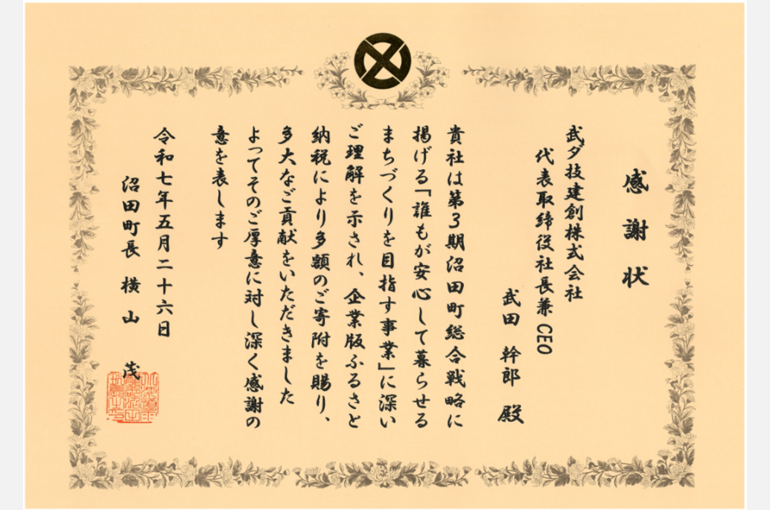 感謝状
武夕技建創株式会社
代表取締役社長兼CEO
武田 幹郎 殿
貴社は第3期沼田町総合戦略に
掲げる「誰もが安心して暮らせる
まちづくりを目指す事業」に深い
ご理解を示され、企業版ふるさと
納税により多額のご寄附を賜り、
多大なご貢献をいただきました
よってそのご厚意に対し深く感謝の
意を表します
令和七年五月二十六日
沼田町長 横山 茂